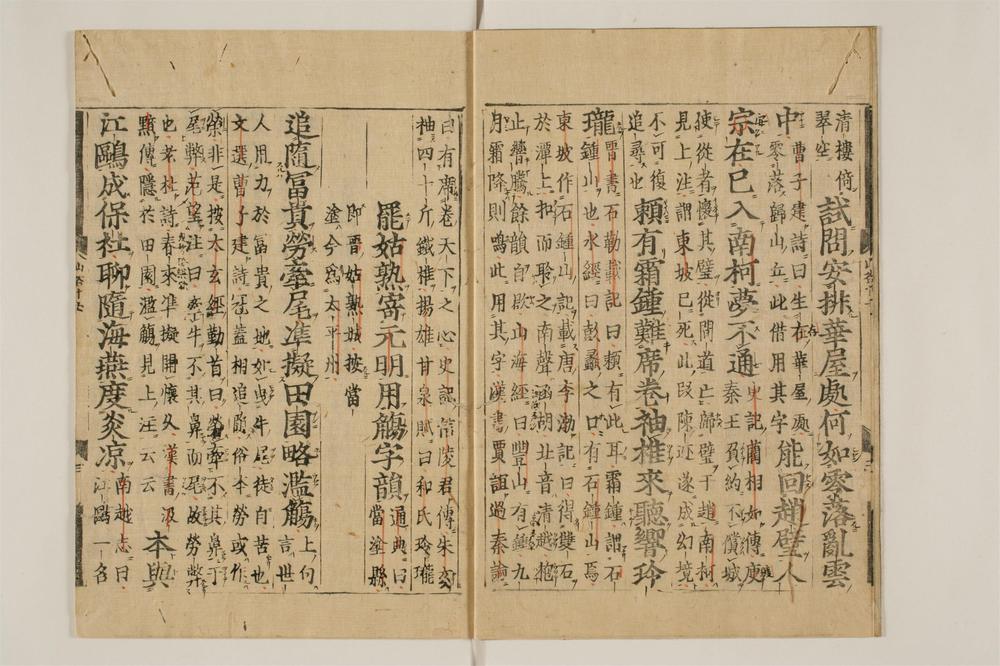 清樓倚
翠空 試問安排華屋處何如零落亂雲
中 曹子建詩曰生在華屋處
零落歸山丘此借用其字 能回趙璧人
宗在已入南柯夢不通 史記藺相如傳庾
秦王負約不償城
使從者懷其璧從間道亡歸璧于趙南柯
見上注謂東坡已死此段陳迹遂成幻境
不可復
追尋也 頼有霜鍾難席卷袖椎來聽響玲
瓏 晋書石勒載記曰頼有此耳霜鍾謂石
鍾山也水經曰彭蠡之口有石鍾山焉
東坡作石鍾山記載唐李渤記曰得雙石
於潭上扣而聆之南聲函胡北音清越枹
止響騰餘韻自歇山海經曰豐山有鍾九
月霜降則鳴此用其字漢書賈誼過秦論
曰有席卷天下之心史記信陵君傳朱亥
袖四十斤鐵椎揚雄甘泉賦曰和氏玲瓏
罷姑熟寄元明用觴字韻 通典曰
當塗縣
即晋姑熟城按當
塗今爲太平州
追隨冨貴勞牽尾準擬田園略濫觴 上句
言世
人用力於冨貴之地如與牛尾徒自苦也
文選曹子建詩冠蓋相追隨俗本勞或作
榮非是按太玄經勤首曰勞牽不其鼻于
尾弊范望注曰牽牛不其鼻而尾故勞弊
也老杜詩春來準擬開懷久漢書汲
黯傳隱於田園濫觴見上注云云 本與
江鷗成保社聊隨海燕度炎凉 南越志曰
江鷗一名